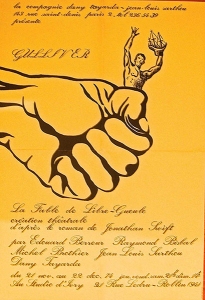 la compagnie dany tayarda - jean-louis sarthou
145 rue saint-denis paris 2. tel 236.54.39
présente
GULLIVER
La Fable de Libre-Gueule
création théâtrale
d'après le roman de Jonathan Swift
par Edouard Berreur Raymond Biabal
Michel Brothier Jean Louis Sarthou
Dany Tayarda
du 21 nov. au 22 dec. 74
Au Studio d'Ivry 21 Rue Ledru-Rollin